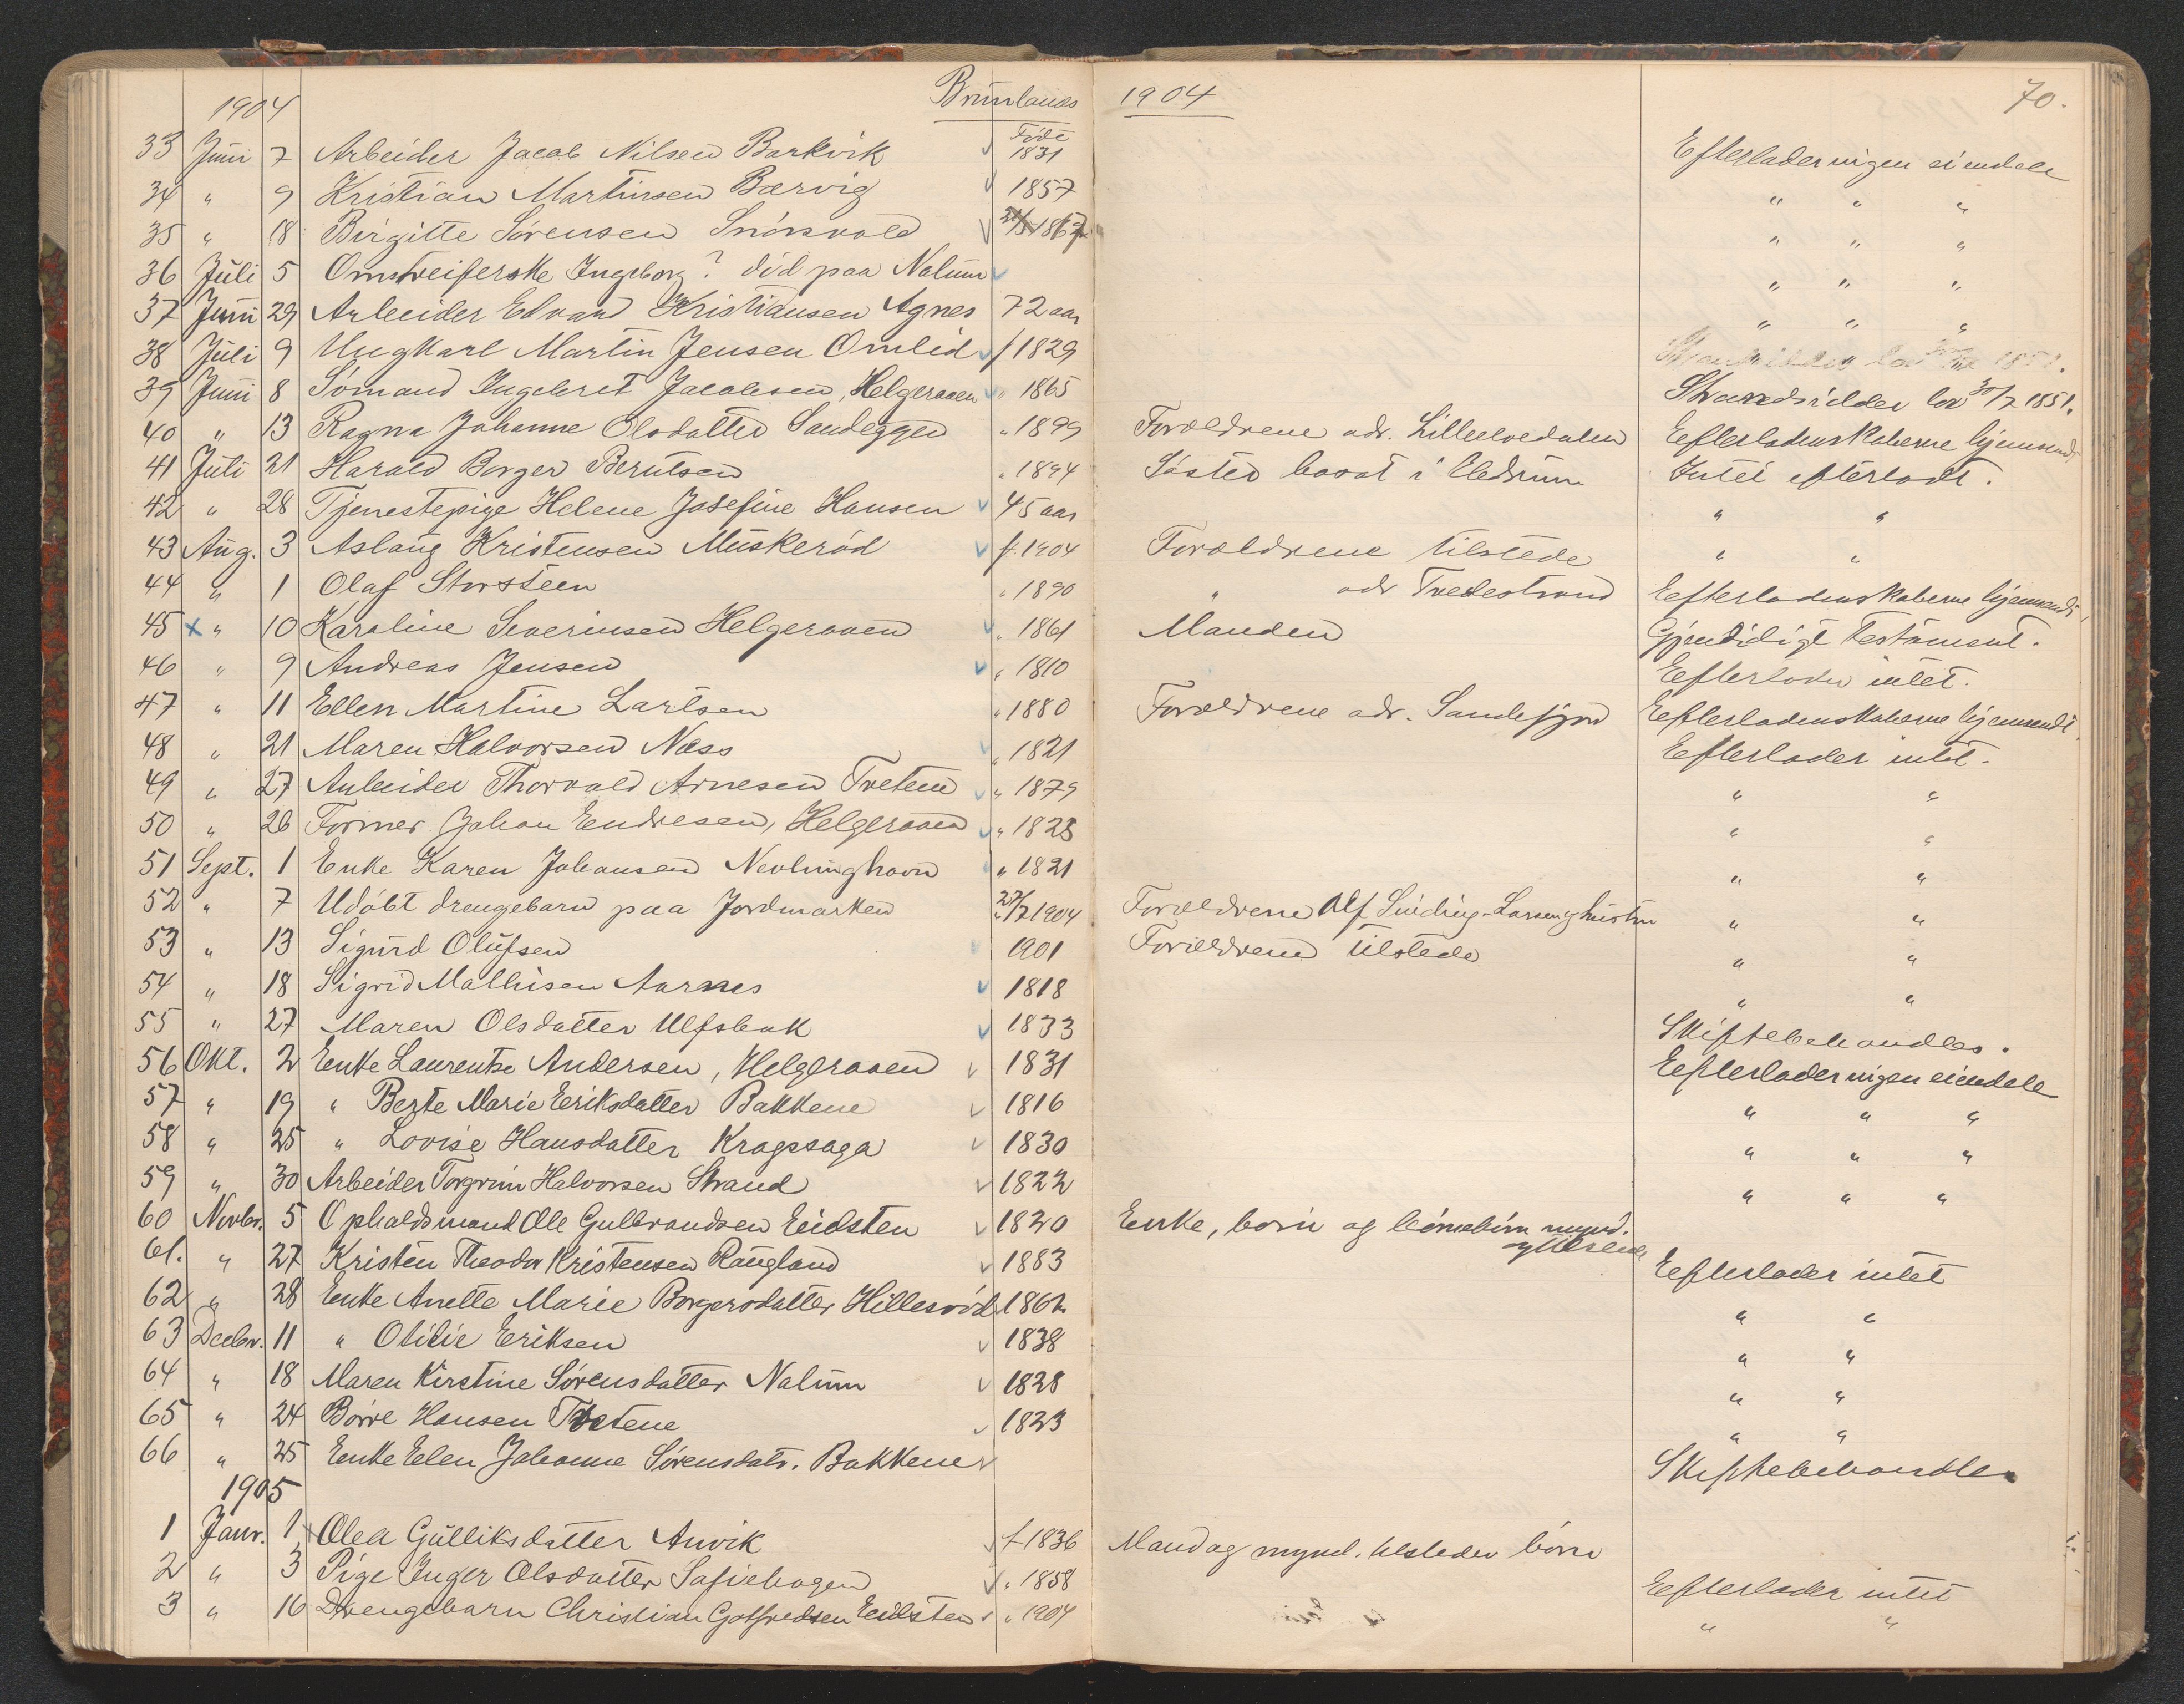 1904 Brunlanæs 1904 70.
Født
33 Juni 7 Arbeider Jacob Nilsen Barkvik 1831 Efterlader ingen eiendele
34 " 9 Kristian Martinsen Barvig 1857 " " "
35 " 18 Birgitte Sørensen " " "
36 Juli 5 Omstreiferske Ingeborg? død paa Nalum " " "
37 Juni 29 Arbeider Edvard Kristiansen Agnes 72 aar " " "
38 Juli 9 Ungkarl Martin Jensen Omlid f 1829
39 Juni 8 Sømand Ingebret Jacobsen, Helgeroaen " 1865 Strandsidder lov 30/7 1851.
40 " 13 Ragna Johanne Olsdatter Sandeggen " 1899 Forældrene adr. Lilleelvedalen Efterladenskaberne hjemsendt
41 Juli 21 Harald Borger Berntsen " 1894 Søster bosat i Hedrum Intet efterladt.
42 " 28 Tjenestepige Helene Josefine Hansen 45 aar " "
43 Aug. 3 Aslaug Kristensen Muskerød f. 1904 Forældrene tilstede " "
44 " 1 Olaf Storsteen " 1890 " adr Tvedestrand Efterladenskaberne hjemsendt,
45 x " 10 Karoline Severinsen Helgeroaen " 1861 Manden Gjensidigt testament.
46 " 9 Andreas Jensen " 1810 Efterlader intet.
47 " 11 Ellen Martine Larsen " 1880 Forældrene adr. Sandefjord Efterladenskaberne hjemsendt.
48 " 21 Maren Halvorsen Næss " 1821 Efterlader intet.
49 " 27 Arbeider Thorvald Arnesen Tveten " 1879 " "
50 " 26 Former Johan Endresen, Helgeroaen " 1828 " "
51 Sept. 1 Enke Karen Johansen Nevlunghavn " 1821 " "
52 " 7 Udøbt drengebarn paa Jordmarken 27/7 1904 Forældrene Alf Sinding-Larsen og hustru " "
53 " 13 Sigurd Olufsen 1901 Forældrene tilstede " "
54 " 18 Sigrid Mathisen Aarnes 1818 " "
55 " 27 Maren Olsdatter Ulfsbak 1833 Skiftebehandles.
56 Okt. 2 Enke Laurentze Andersen, Helgeroaen 1831 Efterlader ingen eiendele
57 " 19 " Berte Marie Eriksdatter Bakkene 1816 " " "
58 " 25 " Lovise Hansdatter Kragssaga 1830 " " "
59 " 30 Arbeider Torgrim Halvorsen Strand 1822 " " "
60 Novbr. 5 Opholdsmand Ole Gulbrandsen Eidsten 1820 Enke, børn og børnebørn mynd.
og tilstede
61. " 27 Kristen Theodor Kristensen Raugland 1883 Efterlader intet
62 " 28 Enke Anette Marie Borgersdatter Hillesrød 1862 " "
63 Decbr. 11 " Otilie Eriksen 1838 " "
64 " 18 Maren Kirstine Sørensdatter Nalum 1828 " "
65 " 24 Børre Hansen Tvetene 1823 " "
66 " 25 Enke Elen Johanne Sørensdatr. Bakkene Skiftebehandles
1905
1 Janr. 1 Olea Gulliksdatter Anvik f 1836 Mand og mynd. tilstedev børn
2 " 3 Pige Inger Olsdatter Safiehagen " 1858 Efterlader intet
3 " 16 Drengebarn Christian Gotfredsen Eidsten " 1904 " "